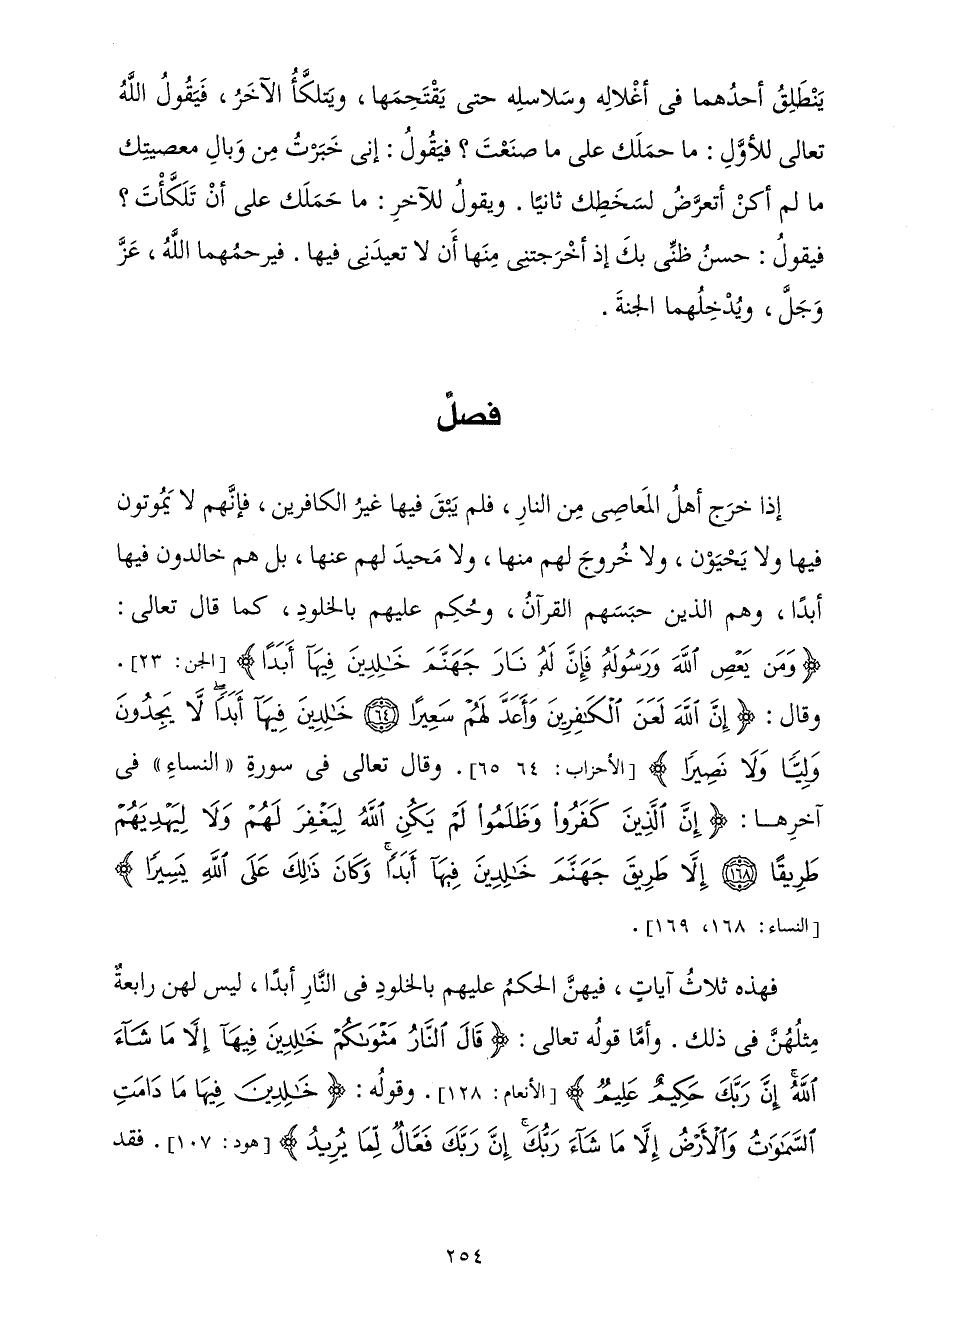 يَنْطَلِقُ أحدُهما فى أغْلالِه وسَلاسلِه حتى يَقْتَحِمَها، ويَتلكَّأُ الآخَرُ، فَيَقُولُ اللَّهُ
تعالى للأوَّلِ: ما حمَلَك على ما صنَعْتَ؟ فيَقُولُ: إنى خَبَرْتُ مِن وَبالِ معصيتِك
ما لم أكنْ أتعرَّضُ لسَخَطِك ثانيًا. ويقولُ للآخرِ: ما حَمَلَك على أنْ تَلَكَّأْتَ؟
فيقولُ: حسنُ ظنِّى بكَ إذ أخْرَجتنِى مِنَها أَن لا تعيدَنِى فيها. فيرحمُهما اللَّهُ، عَزَّ
وَجَلَّ، ويُدْخِلُهما الجنةَ.
فصلٌ
إذا خرَج أهلُ المَعاصِى مِن النارِ، فلم يَبْقَ فيها غيرُ الكافرين، فإنَّهم لا يَمُوتون
فيها ولا يَحْيَوْن، ولا خُروجَ لهم منها، ولا مَحيدَ لهم عنها، بل هم خالدون فيها
أبدًا، وهم الذين حبَسَهم القرآنُ، وحُكِم عليهم بالخلودِ، كما قال تعالى:
﴿وَمَن يَعْصِ ٱللَّهَ وَرَسُولَهُۥ فَإِنَّ لَهُۥ نَارَ جَهَنَّمَ خَٰلِدِينَ فِيهَآ أَبَدًا﴾ [الجن: ٢٣].
وقال: ﴿إِنَّ ٱللَّهَ لَعَنَ ٱلْكَٰفِرِينَ وَأَعَدَّ لَهُمْ سَعِيرًا ﴿٦٤﴾ خَٰلِدِينَ فِيهَآ أَبَدًاۖ لَّا يَجِدُونَ
وَلِيًّا وَلَا نَصِيرًا﴾ [الأحزاب: ٦٤، ٦٥]. وقال تعالى فى سورةِ «النساءِ» فى
آخرِهـا: ﴿إِنَّ ٱلَّذِينَ كَفَرُوا۟ وَظَلَمُوا۟ لَمْ يَكُنِ ٱللَّهُ لِيَغْفِرَ لَهُمْ وَلَا لِيَهْدِيَهُمْ
طَرِيقًا ﴿١٦٨﴾ إِلَّا طَرِيقَ جَهَنَّمَ خَٰلِدِينَ فِيهَآ أَبَدًاۚ وَكَانَ ذَٰلِكَ عَلَى ٱللَّهِ يَسِيرًا﴾
[النساء: ١٦٨، ١٦٩].
فهذه ثلاثُ آياتٍ، فيهنَّ الحكمُ عليهم بالخلودِ فى النَّارِ أبدًا، ليس لهن رابعةٌ
مِثلُهُنَّ فى ذلك. وأمَّا قولُه تعالى: ﴿قَالَ ٱلنَّارُ مَثْوَىٰكُمْ خَٰلِدِينَ فِيهَآ إِلَّا مَا شَآءَ
ٱللَّهُۗ إِنَّ رَبَّكَ حَكِيمٌ عَلِيمٌ﴾ [الأنعام: ١٢٨]. وقولُه: ﴿خَٰلِدِينَ فِيهَا مَا دَامَتِ
ٱلسَّمَٰوَٰتُ وَٱلْأَرْضُ إِلَّا مَا شَآءَ رَبُّكَۚ إِنَّ رَبَّكَ فَعَّالٌ لِّمَا يُرِيدُ﴾ [هود: ١٠٧]. فقد
٢٥٤